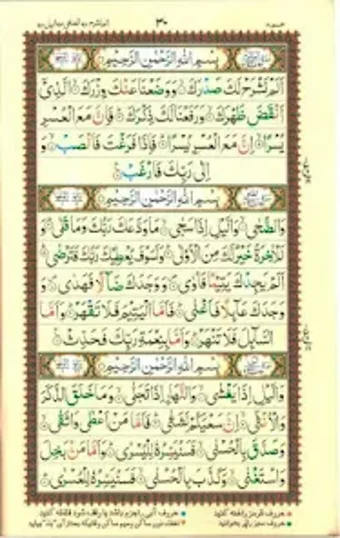 ۳۰
بِسْمِ اللّٰهِ الرَّحْمٰنِ الرَّحِیْمِ
اَلَمْ نَشْرَحْ لَكَ صَدْرَكَ وَوَضَعْنَا عَنْكَ وِزْرَكَ الَّذِیْٓ
اَنْقَضَ ظَهْرَكَ وَرَفَعْنَا لَكَ ذِكْرَكَ فَاِنَّ مَعَ الْعُسْرِ
یُسْرًا اِنَّ مَعَ الْعُسْرِ یُسْرًا فَاِذَا فَرَغْتَ فَانْصَبْ وَ
اِلٰی رَبِّكَ فَارْغَبْ
بِسْمِ اللّٰهِ الرَّحْمٰنِ الرَّحِیْمِ
وَالضُّحٰی وَالَّیْلِ اِذَا سَجٰی مَا وَدَّعَكَ رَبُّكَ وَمَا قَلٰی وَ
لَلْاٰخِرَةُ خَیْرٌ لَّكَ مِنَ الْاُوْلٰی وَلَسَوْفَ یُعْطِیْكَ رَبُّكَ فَتَرْضٰی
اَلَمْ یَجِدْكَ یَتِیْمًا فَاٰوٰی وَوَجَدَكَ ضَآلًّا فَهَدٰی وَ
وَجَدَكَ عَآئِلًا فَاَغْنٰی فَاَمَّا الْیَتِیْمَ فَلَا تَقْهَرْ وَاَمَّا
السَّآئِلَ فَلَا تَنْهَرْ وَاَمَّا بِنِعْمَةِ رَبِّكَ فَحَدِّثْ
بِسْمِ اللّٰهِ الرَّحْمٰنِ الرَّحِیْمِ
وَالَّیْلِ اِذَا یَغْشٰی وَالنَّهَارِ اِذَا تَجَلّٰی وَمَا خَلَقَ الذَّكَرَ
وَالْاُنْثٰی اِنَّ سَعْیَكُمْ لَشَتّٰی فَاَمَّا مَنْ اَعْطٰی وَاتَّقٰی
وَصَدَّقَ بِالْحُسْنٰی فَسَنُیَسِّرُهٗ لِلْیُسْرٰی وَاَمَّا مَنْ بَخِلَ
وَاسْتَغْنٰی وَكَذَّبَ بِالْحُسْنٰی فَسَنُیَسِّرُهٗ لِلْعُسْرٰی